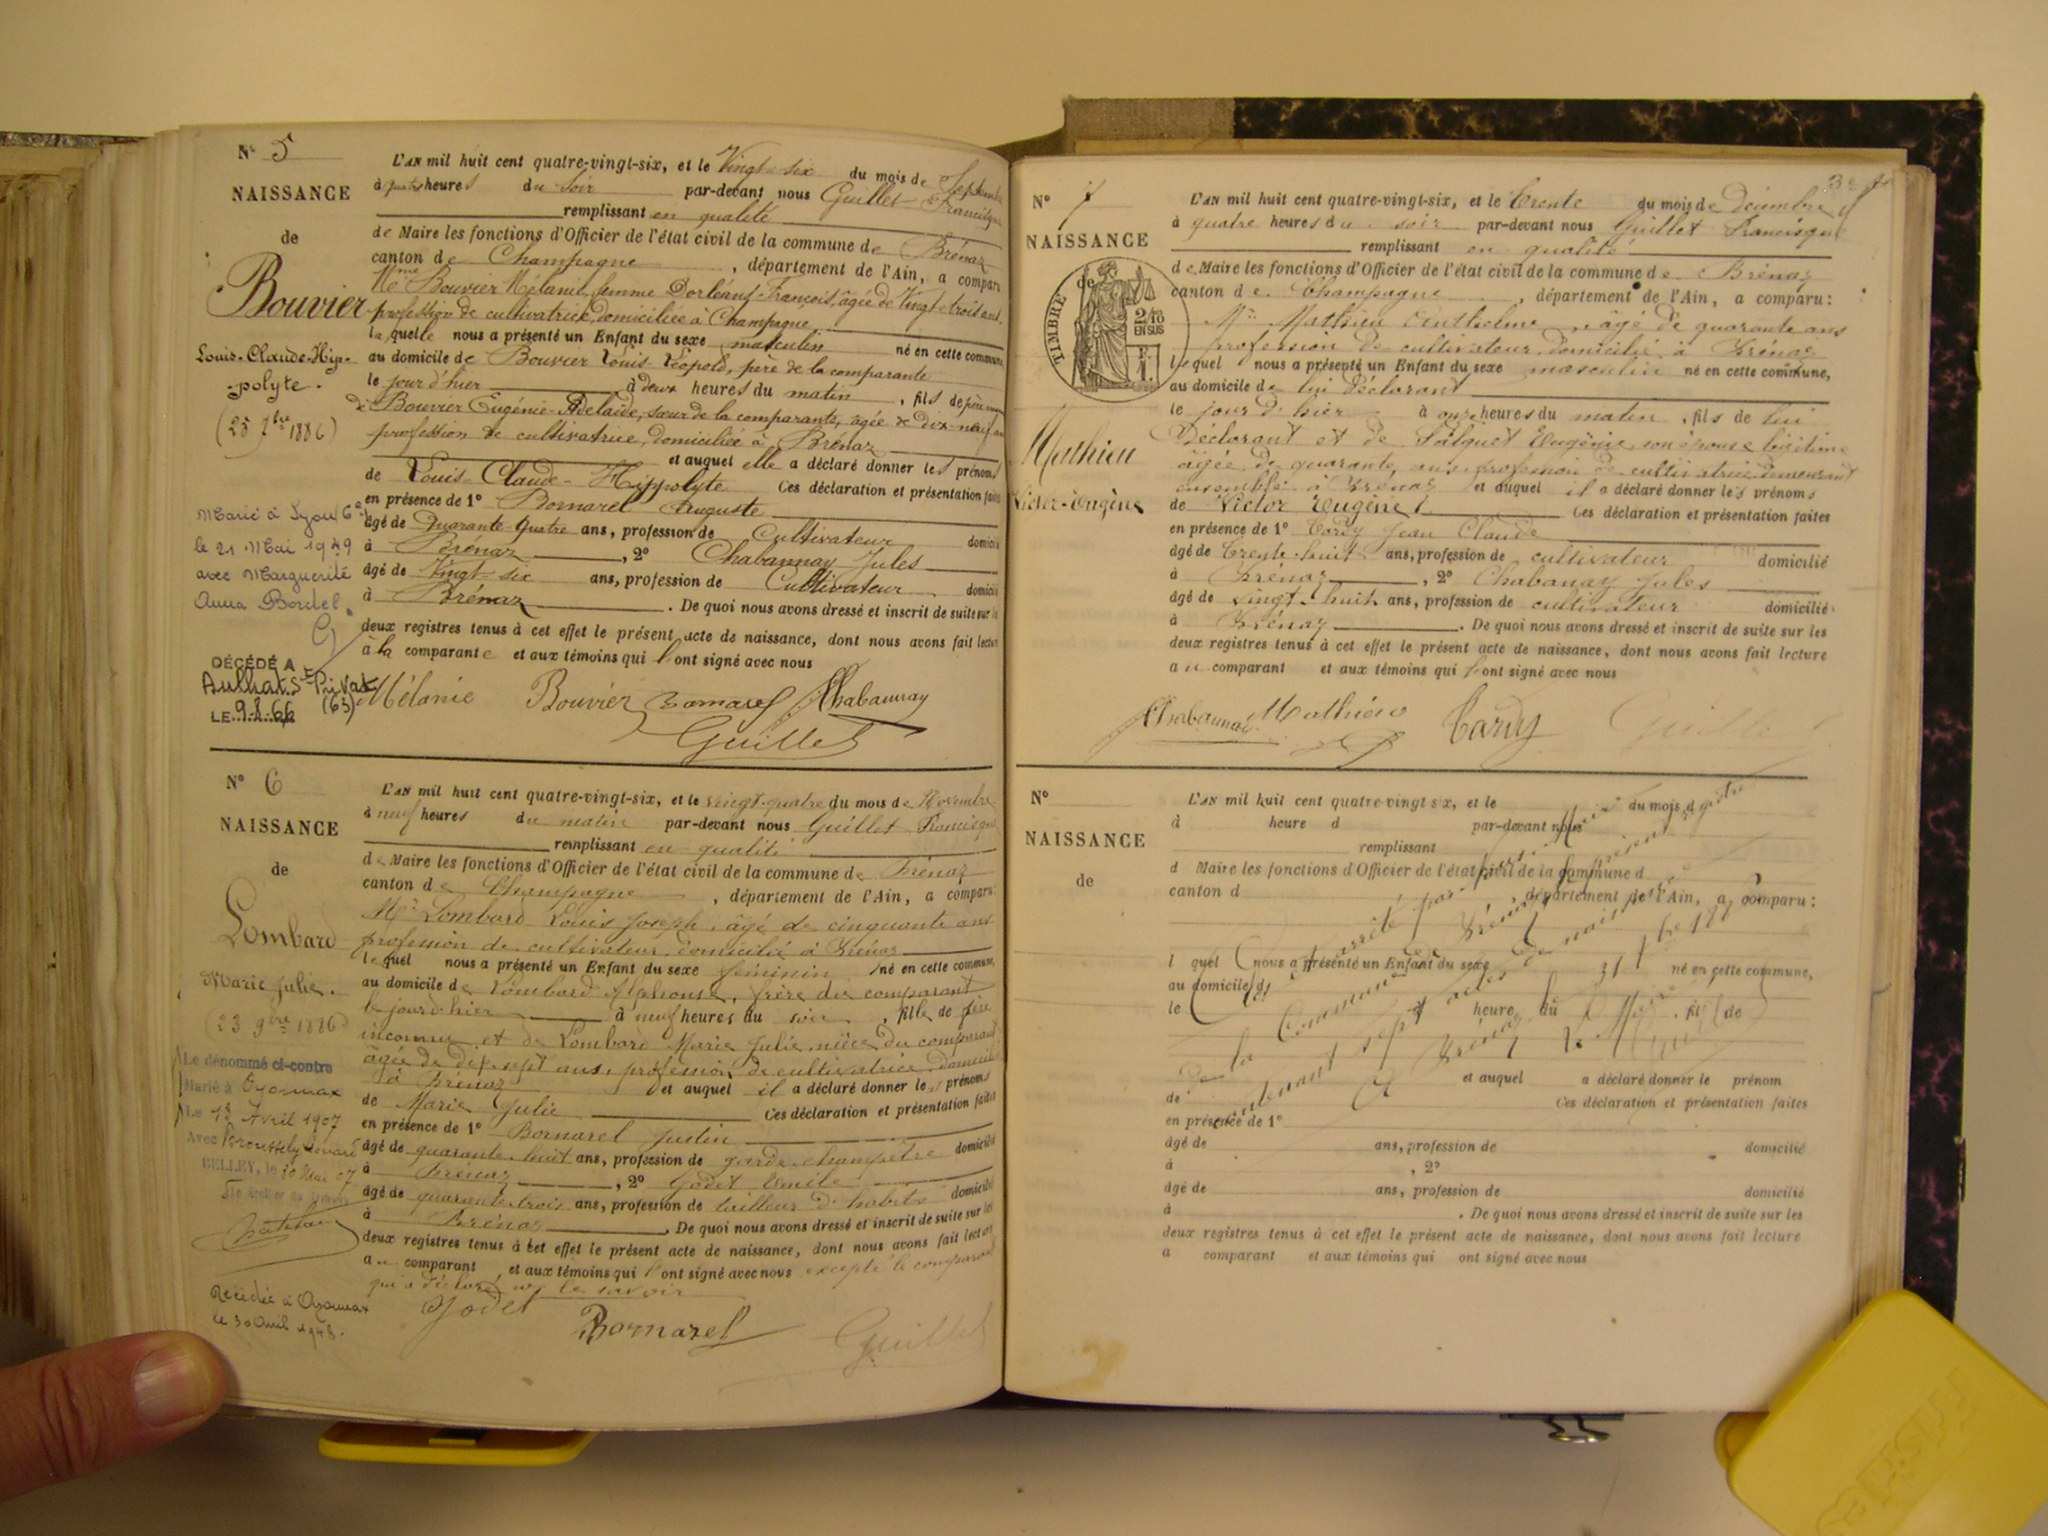 N° 5
NAISSANCE
de
Bouvier
Louis-Claude-Hip-
-polyte.
(25 7bre 1886)
Marié à Lyon 6e
le 21 Mai 1949
avec Marguerite
Anna Bordel.
DÉCÉDÉ A
Aulhat-St-Privat
(63)
LE 9.8.66
L'AN mil huit cent quatre-vingt-six, et le Vingt-six du mois de Septembre
à quatre heures du soir par-devant nous Guillet Francisque
remplissant en qualité
de Maire les fonctions d'Officier de l'état civil de la commune de Brénaz
canton de Champagne, département de l'Ain, a comparu
Mme Bouvier Mélanie, femme Dorléans François, âgée de Vingt-trois ans,
profession de cultivatrice, domiciliée à Champagne
laquelle nous a présenté un Enfant du sexe masculin né en cette commune,
au domicile de Bouvier Louis-Léopold, père de la comparante
le jour d'hier à deux heures du matin, fils de père
de Bouvier Eugénie-Adélaïde, sœur de la comparante, âgée de dix-neuf
profession de cultivatrice, domiciliée à Brénaz
et auquel elle a déclaré donner les prénoms
de Louis-Claude-Hippolyte Ces déclaration et présentation faites
en présence de 1° Bornarel Auguste
âgé de Quarante-quatre ans, profession de Cultivateur domicilié
à Brénaz, 2° Chabannay Jules
âgé de Vingt-six ans, profession de Cultivateur domicilié
à Brénaz. De quoi nous avons dressé et inscrit de suite sur les
deux registres tenus à cet effet le présent acte de naissance, dont nous avons fait lecture
à la comparante et aux témoins qui l'ont signé avec nous
Mélanie Bouvier Bornarel JChabannay
Guillet
N° 6
NAISSANCE
de
Lombard
Marie Julie.
(23 9bre 1886)
Le dénommé ci-contre
Marié à Oyonnax
Le 1er Avril 1907
Avec
BELLEY, le
Décédée à Oyonnax
le 30 Avril 1948.
L'AN mil huit cent quatre-vingt-six, et le vingt-quatre du mois de Novembre
à neuf heures du matin par-devant nous Guillet Francisque
remplissant en qualité
de Maire les fonctions d'Officier de l'état civil de la commune de Brénaz
canton de Champagne, département de l'Ain, a comparu
Mr Lombard Louis Joseph, âgé de cinquante ans
profession de cultivateur, domicilié à Brénaz
lequel nous a présenté un Enfant du sexe féminin né en cette commune,
au domicile de Lombard Alphonse, frère du comparant
le jour d'hier à neuf heures du soir, fille de père
inconnu et de Lombard Marie Julie, nièce du comparant
âgée de dix-sept ans, profession de cultivatrice, domiciliée
à Brénaz et auquel il a déclaré donner les prénoms
de Marie Julie Ces déclaration et présentation faites
en présence de 1° Bornarel Justin
âgé de quarante-huit ans, profession de garde-champêtre domicilié
à Brénaz, 2° Godet Emile
âgé de quarante-trois ans, profession de tailleur d'habits domicilié
à Brénaz. De quoi nous avons dressé et inscrit de suite sur les
deux registres tenus à cet effet le présent acte de naissance, dont nous avons fait lecture
au comparant et aux témoins qui l'ont signé avec nous excepté le comparant
qui a déclaré ne le savoir
Godet
Bornarel
Guillet
N° 7
NAISSANCE
de
TIMBRE
2/10
EN SUS
Mathieu
Victor-Eugène
L'AN mil huit cent quatre-vingt-six, et le trente du mois de décembre
à quatre heures du soir par-devant nous Guillet Francisque
remplissant en qualité
de Maire les fonctions d'Officier de l'état civil de la commune de Brénaz
canton de Champagne, département de l'Ain, a comparu:
Mr Mathieu Anthelme, âgé de quarante ans
profession de cultivateur, domicilié à Brénaz
lequel nous a présenté un Enfant du sexe masculin né en cette commune,
au domicile de lui déclarant
le jour d'hier à onze heures du matin, fils de lui
Déclarant et de Falquet Eugénie, son épouse légitime
âgée de quarante ans, profession de cultivatrice, demeurant
ensemble à Brénaz et auquel il a déclaré donner les prénoms
de Victor Eugène Ces déclaration et présentation faites
en présence de 1° Tardy Jean Claude
âgé de trente-huit ans, profession de cultivateur domicilié
à Brénaz, 2° Chabanay Jules
âgé de vingt-huit ans, profession de cultivateur domicilié
à Brénaz. De quoi nous avons dressé et inscrit de suite sur les
deux registres tenus à cet effet le présent acte de naissance, dont nous avons fait lecture
au comparant et aux témoins qui l'ont signé avec nous
JChabannay Mathieu Tardy Guillet
N°
NAISSANCE
de
L'AN mil huit cent quatre-vingt-six, et le du mois d
à heure d par-devant nous
remplissant
d Maire les fonctions d'Officier de l'état civil de la commune d
canton d, département de l'Ain, a comparu:
l quel nous a présenté un Enfant du sexe né en cette commune,
au domicile d
le heure du, fil de
et auquel a déclaré donner le prénom
de Ces déclaration et présentation faites
en présence de 1°
âgé de ans, profession de domicilié
à, 2°
âgé de ans, profession de domicilié
à. De quoi nous avons dressé et inscrit de suite sur les
deux registres tenus à cet effet le présent acte de naissance, dont nous avons fait lecture
a comparant et aux témoins qui ont signé avec nous
arrêté par
de la Commune de Brénaz
contenant sept actes de naissance
A Brénaz le 31
Le Maire